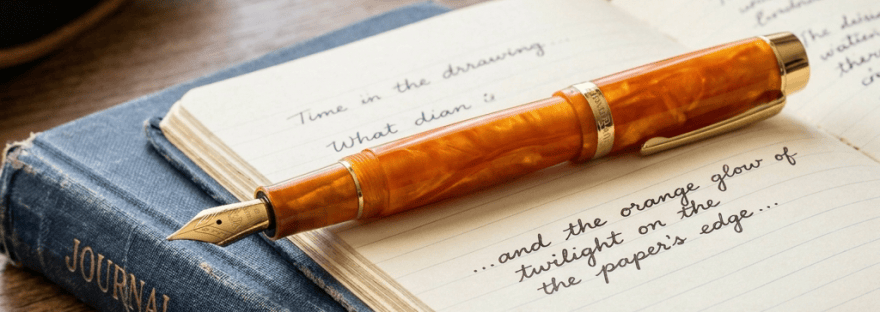 Time in the drrawing...
What dian is
...and the orange glow of
twilight on the
the paper's edge...
The
JOURNAL